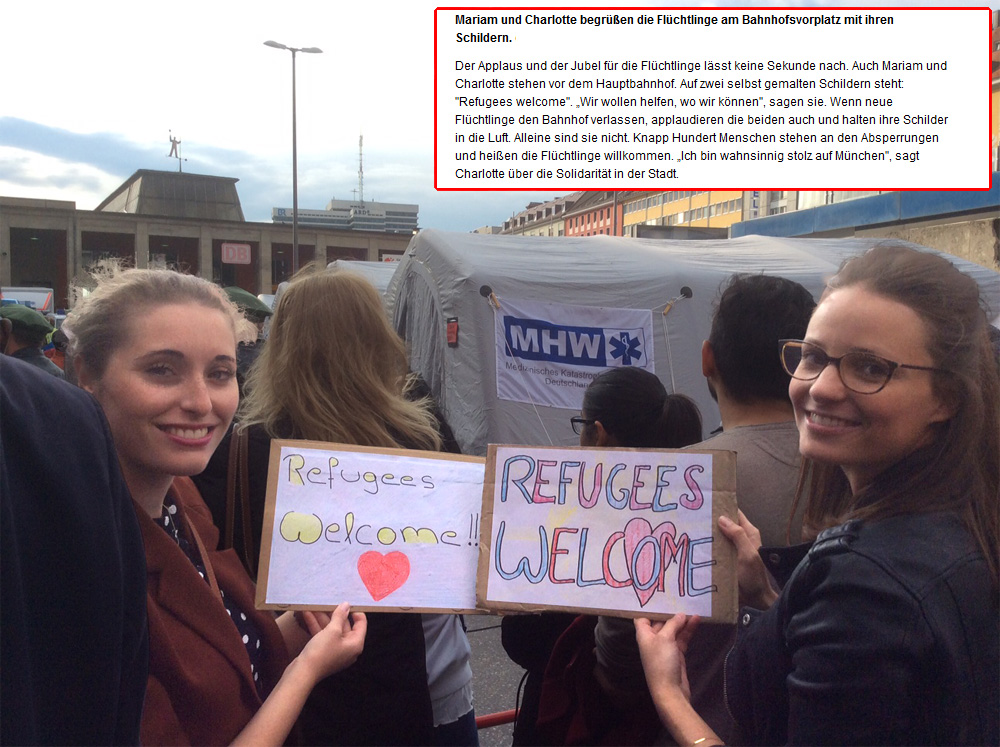 Mariam und Charlotte begrüßen die Flüchtlinge am Bahnhofsvorplatz mit ihren
Schildern.
Der Applaus und der Jubel für die Flüchtlinge lässt keine Sekunde nach. Auch Mariam und
Charlotte stehen vor dem Hauptbahnhof. Auf zwei selbst gemalten Schildern steht:
"Refugees welcome". „Wir wollen helfen, wo wir können", sagen sie. Wenn neue
Flüchtlinge den Bahnhof verlassen, applaudieren die beiden auch und halten ihre Schilder
in die Luft. Alleine sind sie nicht. Knapp Hundert Menschen stehen an den Absperrungen
und heißen die Flüchtlinge willkommen. „Ich bin wahnsinnig stolz auf München", sagt
Charlotte über die Solidarität in der Stadt.
DB
MHW
Medizinisches
Deutschland
Refugees
Welcome!!
REFUGEES
WELCOME